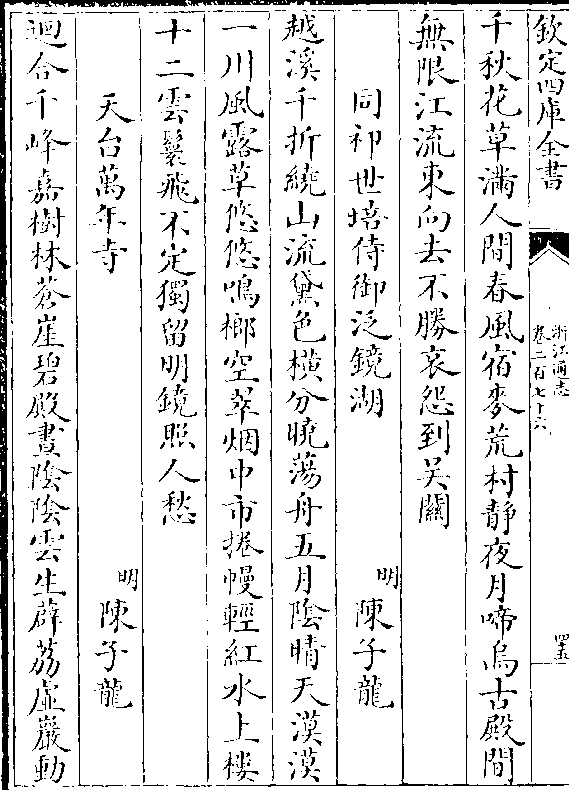 欽定四庫全書
浙江通志
卷二百七十六
千秋花草滿人間春風宿麥荒村靜夜月啼烏古殿間
無限江流東向去不勝哀怨到吴關
同祁世培侍御泛鏡湖
明
陳子龍
越溪千折繞山流黛色橫分曉蕩舟五月陰晴天漠漠
一川風露草悠悠鳴榔空翠烟中市捲幔輕紅水上樓
十二雲鬟飛不定獨留明鏡照人愁
天台萬年寺
明
陳子龍
迴合千峰嘉樹林蒼崖碧殿晝陰陰雲生薜荔虛巖動